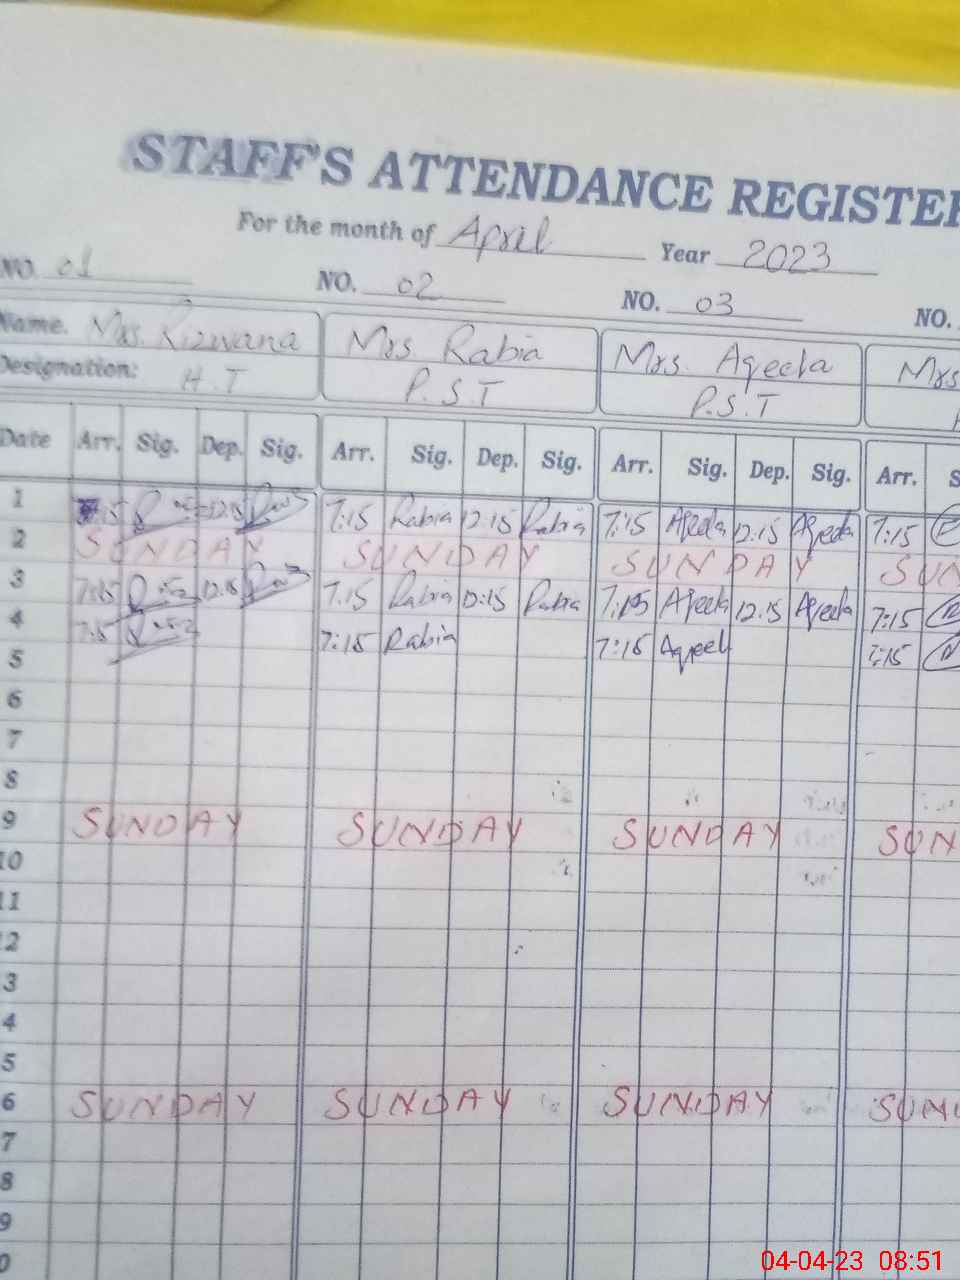 STAFF'S ATTENDANCE REGISTER
For the month of April Year 2023
NO. 01 NO. 02 NO. 03 NO.
Name. Mrs. Rizwana Mrs Rabia Mrs. Aqeela Mrs
Designation: H.T P.S.T P.S.T
Date Arr. Sig. Dep. Sig. Arr. Sig. Dep. Sig. Arr. Sig. Dep. Sig. Arr. S
1 12:15 7:15 Rabia 12:15 Rabia 7:15 Aqeela 12:15 Aqeela 7:15
2 SUNDAY SUNDAY SUNDAY SUN
3 7:15 12:15 7:15 Rabia 12:15 Rabia 7:15 Aqeela 12:15 Aqeela 7:15
4 7:15 7:15 Rabia 7:15 Aqeel 7:15
5
6
7
8
9 SUNDAY SUNDAY SUNDAY SUN
10
11
2
3
4
5
6 SUNDAY SUNDAY SUNDAY SUN
7
8
9
0
04-04-23 08:51